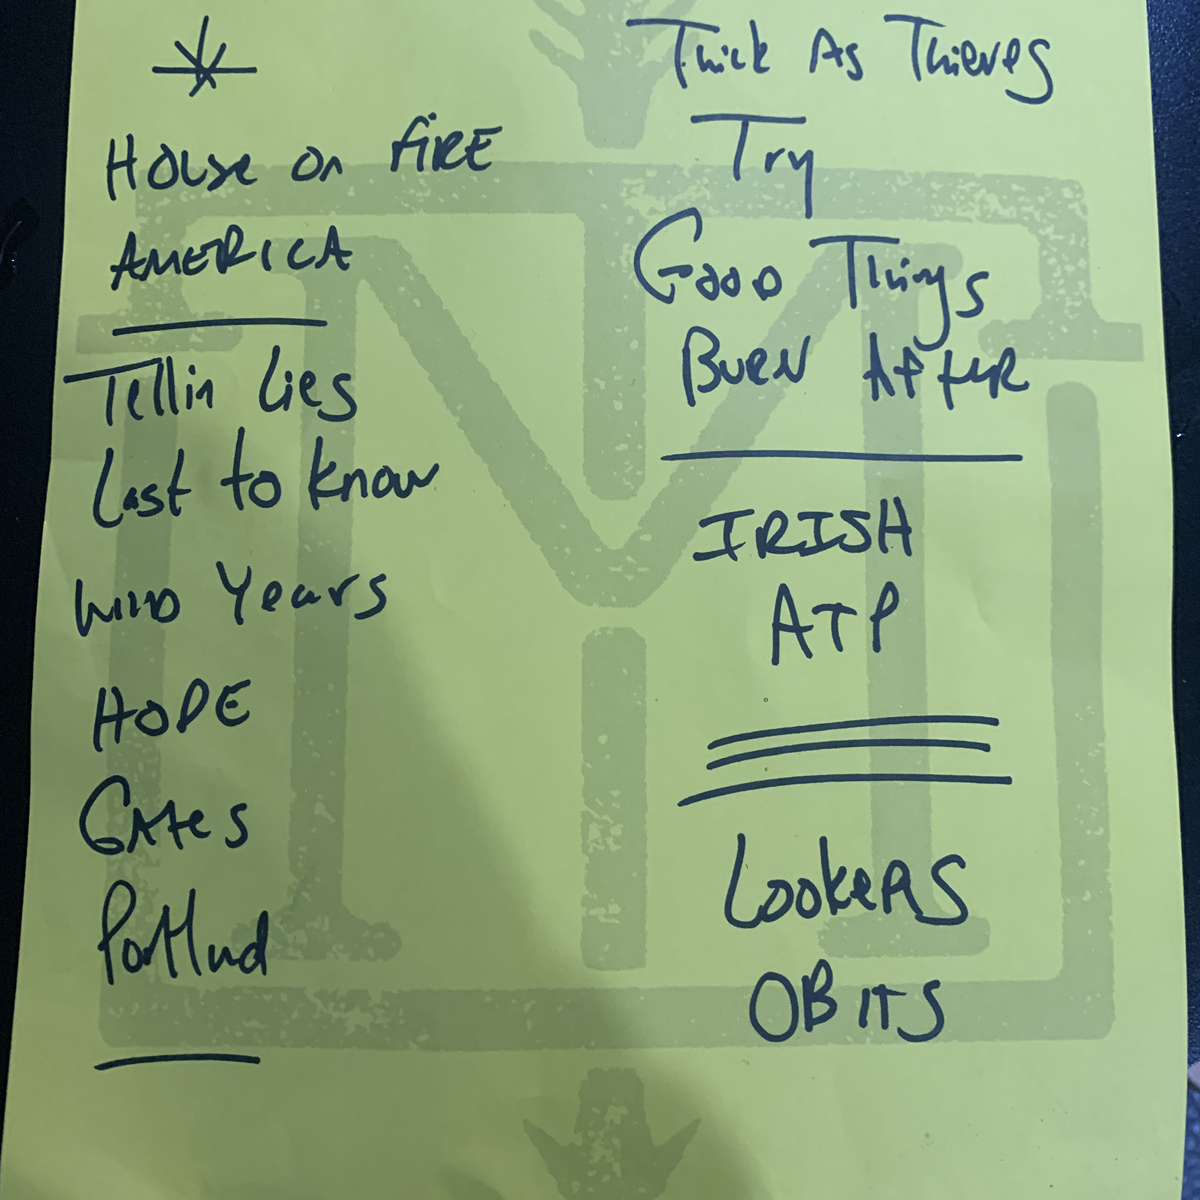 HOUSE ON FIRE
AMERICA
Tellin Lies
Last to know
WILD Years
HOPE
GATES
Portland
Thick As Thieves
Try
GOOD Things
BURN AFTER
IRISH
ATP
LOOKERS
OBITS